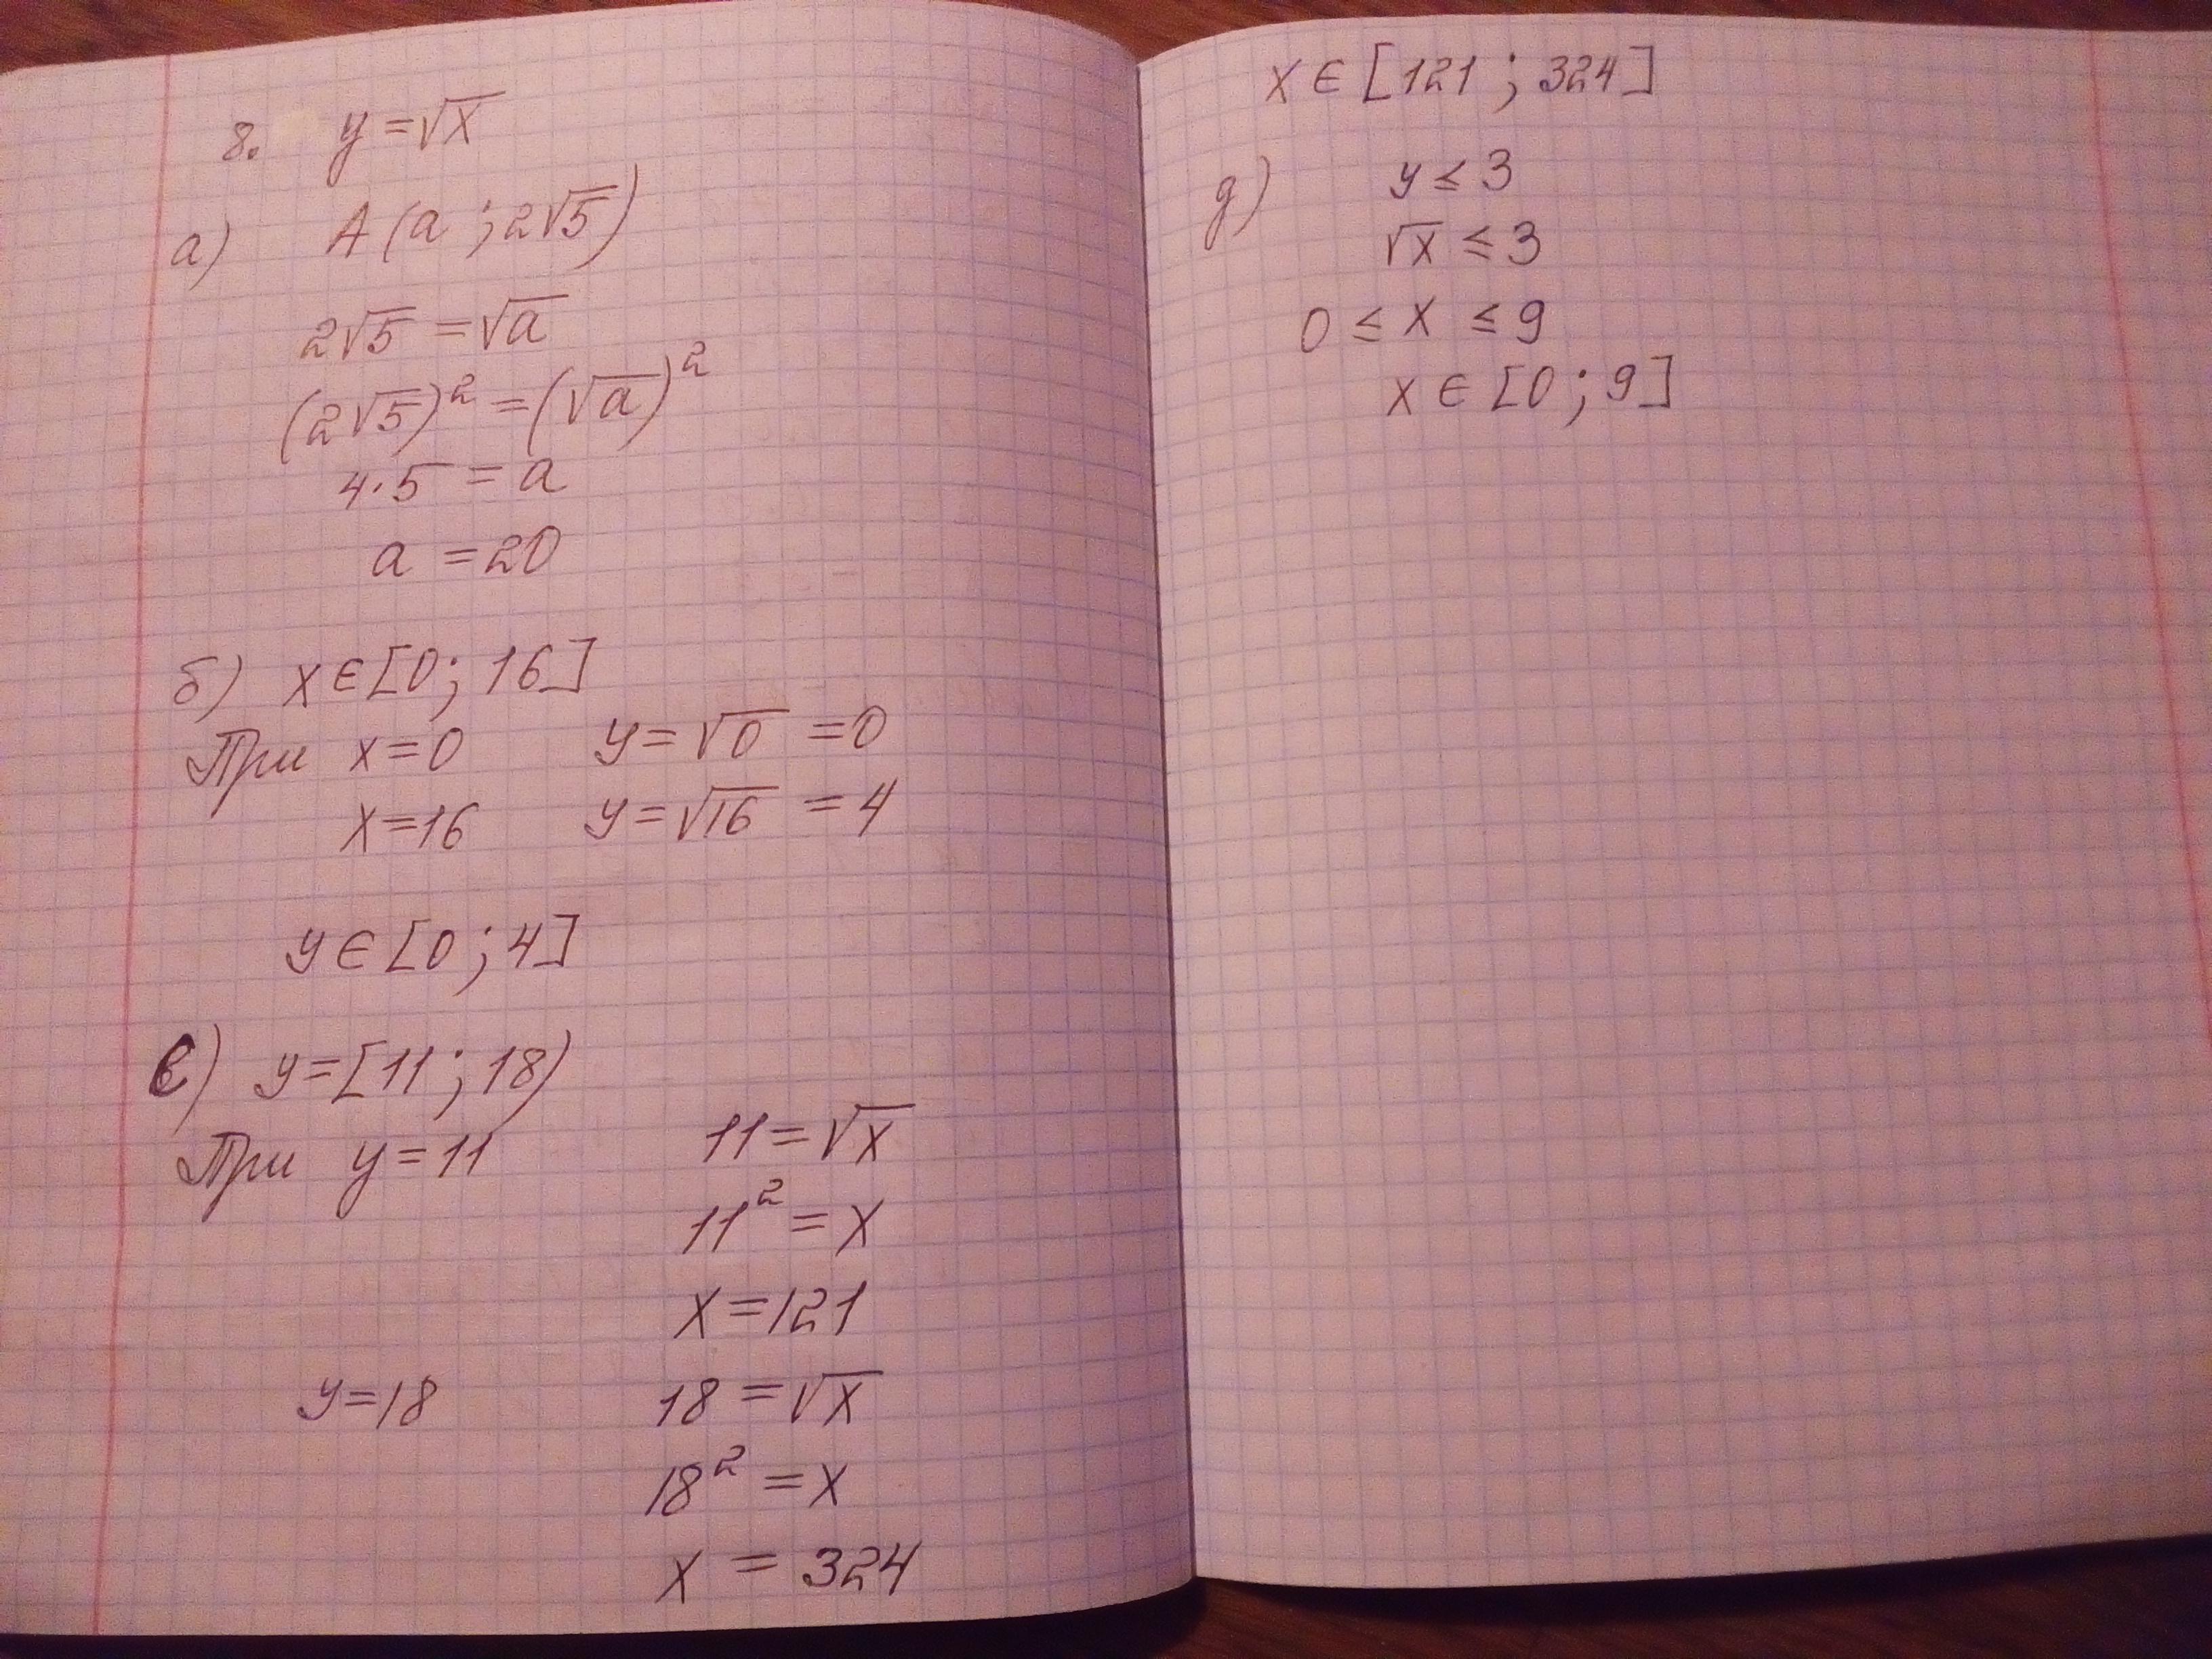 8. y = √x
а) A (a ; 2√5)
2√5 = √a
(2√5)² = (√a)²
4·5 = a
a = 20
б) x ∈ [0; 16]
При x = 0 y = √0 = 0
x = 16 y = √16 = 4
y ∈ [0 ; 4]
в) y = [11 ; 18)
При y = 11 11 = √x
11² = x
x = 121
y = 18 18 = √x
18² = x
x = 324
x ∈ [121 ; 324]
д) y ≤ 3
√x ≤ 3
0 ≤ x ≤ 9
x ∈ [0 ; 9]